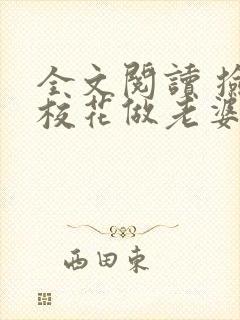 全文閱讀 撿
校花做老婆
西田東